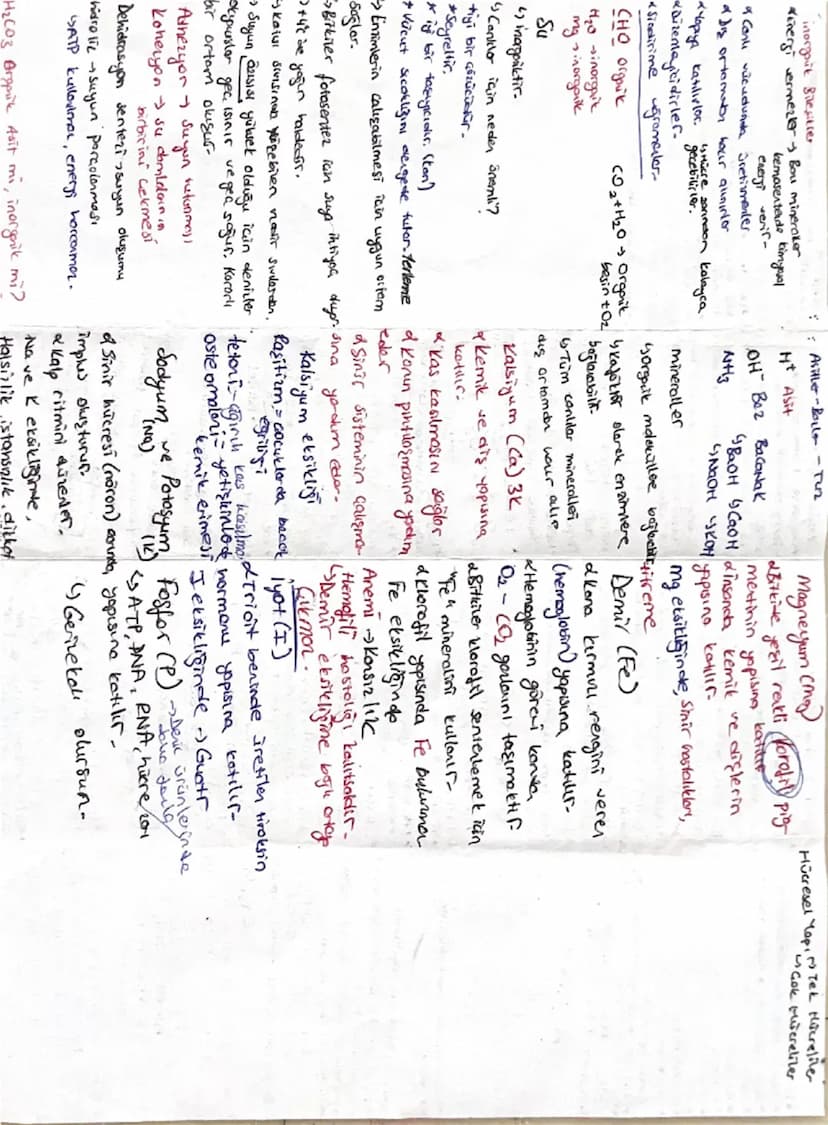 inorganik Bileşikler
* Enerji vermezler → Bazı mineraller
kemosentezde kimyasal
enerji verir-
* Canlı vücudunda üretilmezler
* Dış ortamdan hazır alınırlar
* Yapıya katılırlar. ↳ Hücre zarından kolayca
geçebilirler.
* Düzenleyicidirler.
* Sindirime uğramazlar-
CHO organik
H₂O → inorganik
mg → inorganik
CO₂ + H₂O → Organik
besin + O₂
Su
↳ inorganiktir-
↳ Canlılar için neden önemli?
* iyi bir çözücüdür-
* Seyreltir.
* iyi bir taşıyıcıdır. (kan)
* Vücut sıcaklığını dengede tutar- terleme
↳ Enzimlerin çalışabilmesi için uygun ortam
sağlar.
↳ Bitkiler fotosentez için suya ihtiyaç duyar
→ +4'te yoğun haldedir.
↳ Katısı sıvısında yüzebilen nadir sıvılardan.
↳ Suyun özısısı yüksek olduğu için denizler
okyanuslar geç ısınır ve geç soğur. Kararlı
bir ortam oluşur.
Adhezyon → Suyun tutunması
Kohezyon → su damlalarının
birbirini çekmesi
Dehidrasyon sentezi → suyun oluşumu
hidroliz → suyun parçalanması
↳ ATP kullanılmaz, enerji harcanmaz.
H₂CO₃ Organik Asit mi, inorganik mi?
Asitler - Bazlar - Tuz
H⁺ Asit
OH⁻ Baz Bazlar
NH₃ ↳ BaOH ↳ CaOH
↳ NaOH ↳ KOH
mineraller
↳ organik moleküllere bağlanabilir
↳ Kofaktör olarak enzimlere
bağlanabilir.
↳ Tüm canlılar mineralleri
dış ortamdan hazır alır.
Kalsiyum (Ca) 3K
* Kemik ve diş yapısına
katılır-
* Kas kasılmasını sağlar
* Kanın pıhtılaşmasına yardım
eder
* Sinir sisteminin çalışma-
sına yardım eder.
Kalsiyum eksikliği
Raşitizm = Çocuklarda bacak
eğriliği
tetani - Ağrılı kas kasılması
osteomalazi - yetişkinlerde
kemik erimesi
Sodyum ve Potasyum
(Na) (K)
* Sinir hücresi (nöron) sında
impuls oluşturur.
* Kalp ritmini düzenler.
Na ve K eksikliğinde,
Halsizlik, iştahsızlık, dikkat
Magnezyum (mg)
* Bitkiye yeşil renkli klorofil pig-
mentinin yapısına katılır.
* İnsanda kemik ve dişlerin
yapısına katılır-
mg eksikliğinde, sinir hastalıkları,
titreme
Demir (Fe)
* Kana kırmızı rengini veren
(hemoglobin) yapısına katılır-
* Hemoglobinin görevi kanda
O₂ - CO₂ gazlarını taşımaktır
* Bitkiler klorofil sentezlemek için
"Fe" mineralini kullanır-
* Klorofil yapısında Fe bulunmaz
Fe eksikliğinde
Anemi → Kansızlık
Hemofili hastalığı kalıtsaldır-
↳ Demir eksikliğine bağlı ortaya
Çıkmaz.
İyot (I)
* Tiroit bezinde üretilen tiroksin
hormonu yapısına katılır-
I eksikliğinde → Guatr
Fosfor (P) → Deniz ürünlerinde
daha fazla
↳ ATP, DNA, RNA, hücre zarı
yapısına katılır-
↳ olursun-
Hücresel Yapı ↳ Tek Hücreliler
↳ Çok Hücreliler